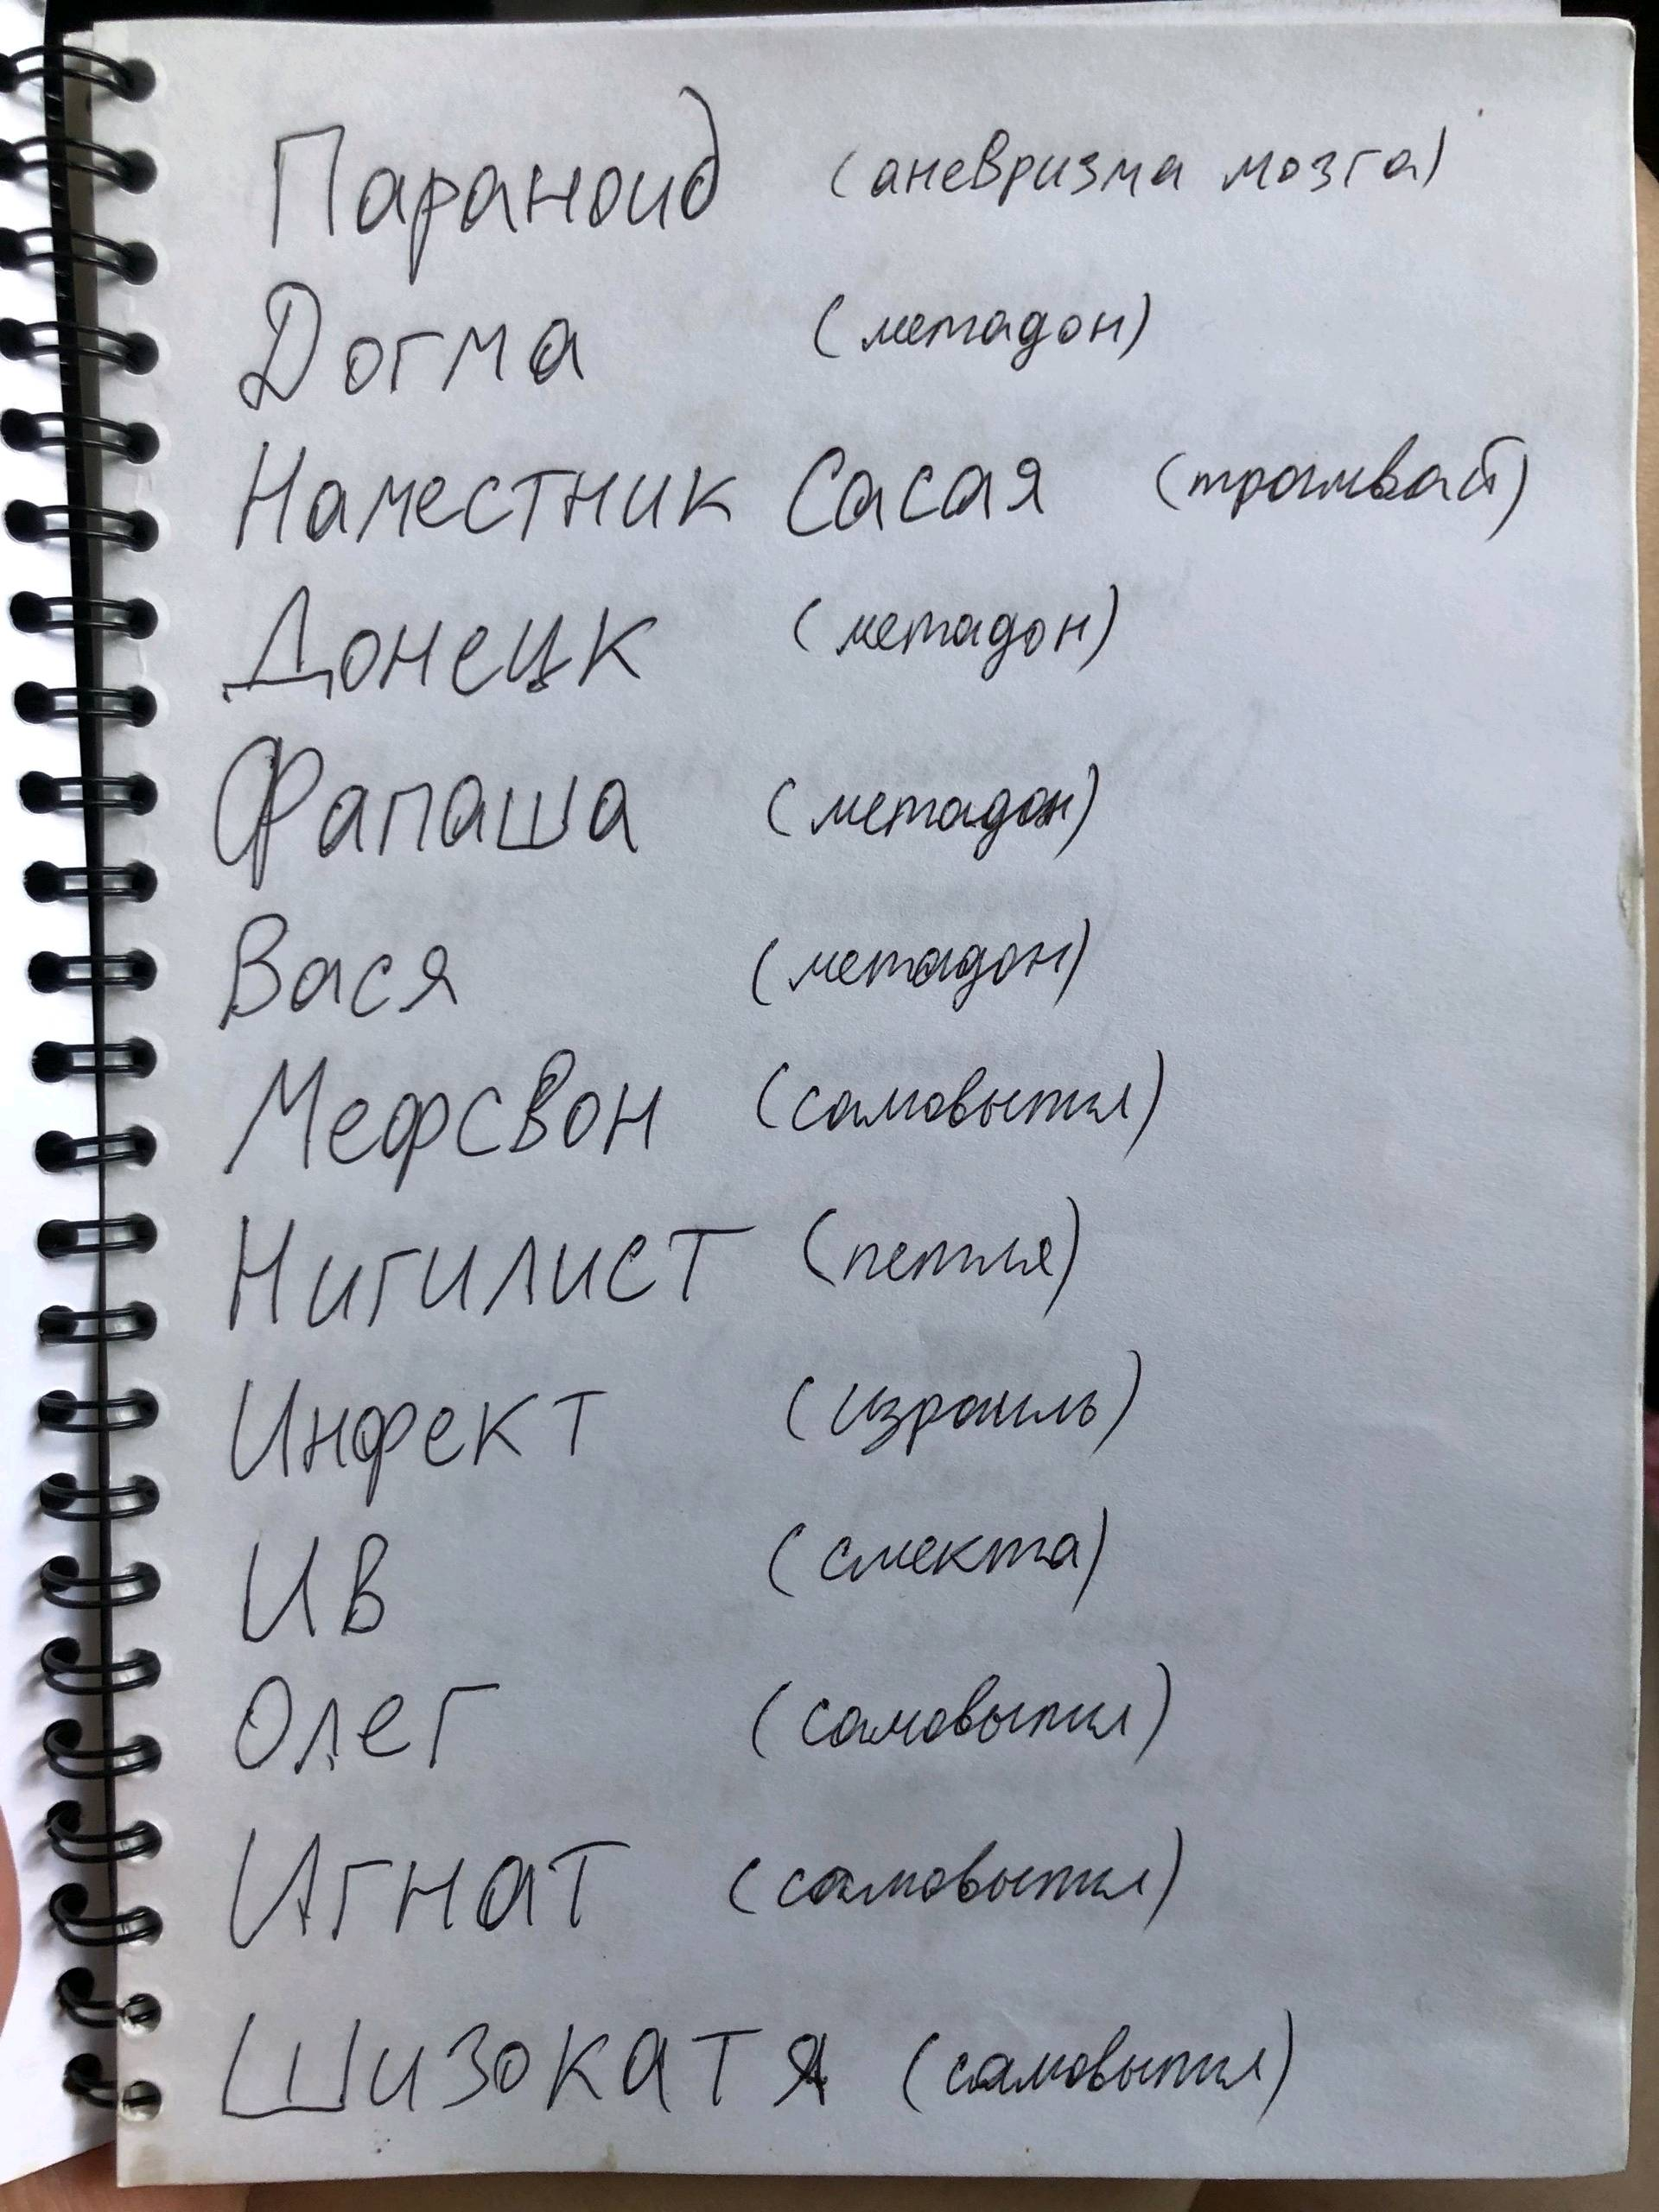 Параноид (аневризма мозга)
Догма (метадон)
Наместник Сасая (трамвай)
Донецк (метадон)
Фапаша (метадон)
Вася (метадон)
Мефсвон (самовыпил)
Нигилист (петля)
Инфект (израиль)
Ив (смекта)
Олег (самовыпил)
Игнат (самовыпил)
Шизокатя (самовыпил)